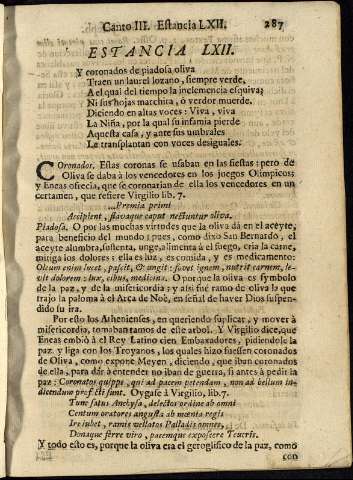 Canto III. Estancia LXII. 287
ESTANCIA LXII.
Y coronados de piadosa oliva
Traen un laurel lozano, siempre verde,
A el qual del tiempo la inclemencia esquiva;
Ni sus hojas marchita, ò verdor muerde.
Diciendo en altas voces: Viva, viva
La Niña, por la qual su infamia pierde
Aquesta casa; y ante sus umbrales
Le transplantan con voces desiguales.
Coronados. Estas coronas se usaban en las fiestas: pero de
Oliva se daba à los vencedores en los juegos Olimpicos;
y Eneas ofrecia, que se coronarian de ella los vencedores en un
certamen, que refiere Virgilio lib. 7.
...Premia primi
Accipient, flavaque caput nectuntur oliva.
Piadosa. O por las muchas virtudes que la oliva dà en el aceyte,
para beneficio del mundo: pues, como dixo San Bernardo, el
aceyte alumbra, sustenta, unge, alimenta à el fuego, cria la carne,
mitiga los dolores: ella es luz, es comida, y es medicamento:
Oleum enim lucet, pascit, & ungit: fovet ignem, nutrit carmem, le-
nit dolorem: lux, cibus, medicina. O por que la oliva es symbolo
de la paz, y de la misericordia; y assi fuè ramo de oliva lo que
trajo la paloma à el Arca de Noè, en señal de haver Dios suspen-
dido su ira.
Por esto los Athenienses, en queriendo suplicar, y mover à
misericordia, tomaban ramos de este arbol. Y Virgilio dice, que
Eneas embió à el Rey Latino cien Embaxadores, pidiendole la
paz y liga con los Troyanos, los quales hizo fuessen coronados
de Oliva, como expone Meyen, diciendo, que iban coronados
de ella, para dàr à entender no iban de guerra, si antes à pedir la
paz: Coronatos quippe, qui ad pacem petendam, non ad bellum in-
dicendum profecti sunt. Oygase à Virgilio, lib. 7.
Tunc satus Anchysa, delectos ordine ab omni
Centum oratores augusta ab mœnia regis
Ire iubet, ramis vellatos Palladis omnes,
Donaque ferre viro, pacemque exposcere Teucris.
Y todo esto es, porque la oliva era el geroglifico de la paz, como
con